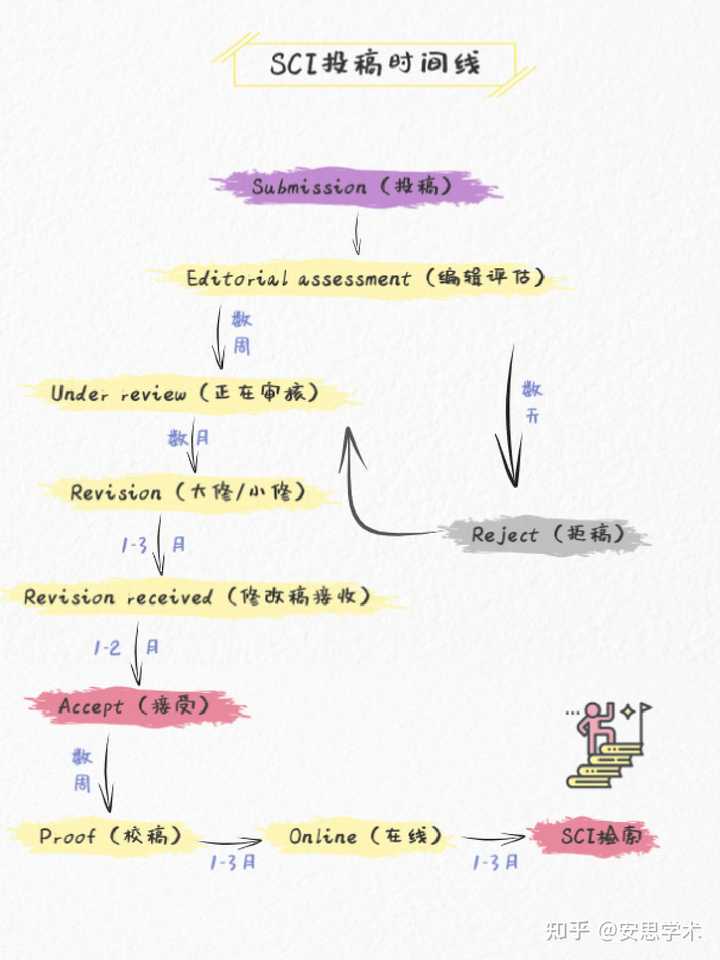 SCI投稿时间线
Submission（投稿）
Editorial assessment（编辑评估）
数
周
数
天
Under review（正在审核）
数月
Revision（大修/小修）
Reject（拒稿）
1-3 月
Revision received（修改稿接收）
1-2 月
Accept（接受）
数
周
Proof（校稿）
1-3月
Online（在线）
1-3月
SCI检索
知乎 @安思学术